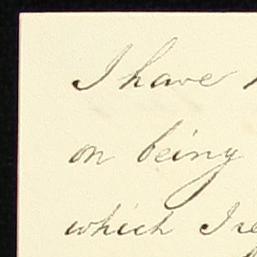 I have
on being
which I re